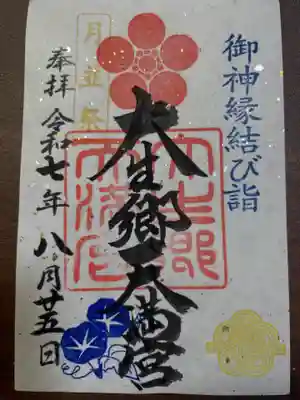 御神縁結び詣
大生郷天満宮
月並祭
奉拝 令和七年 八月廿五日